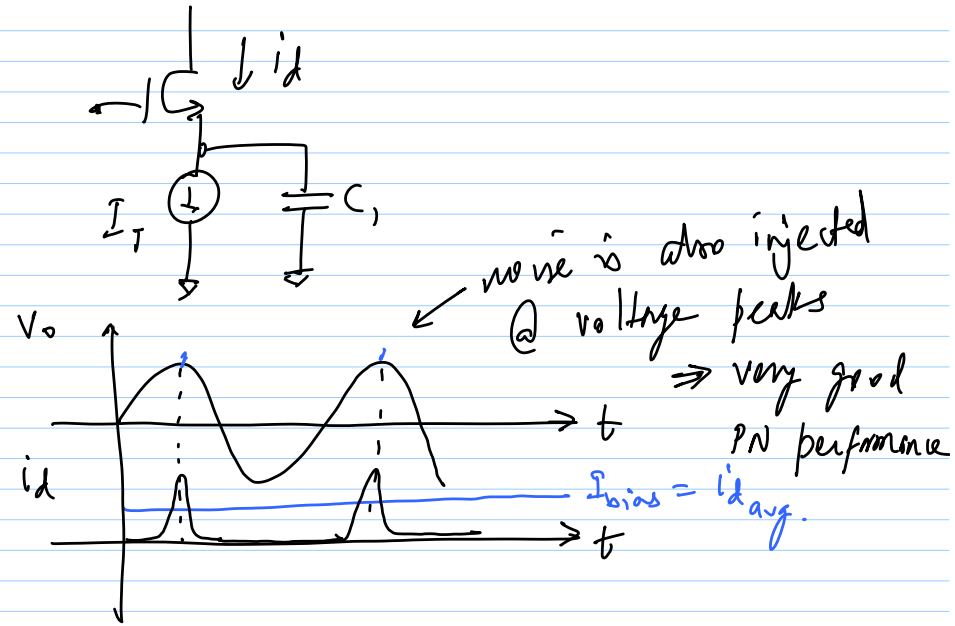 id
I_T
C₁
noise is also injected
@ voltage peaks
⇒ very good
PN performance
V₀
t
id
I_bias = i_d avg.
t